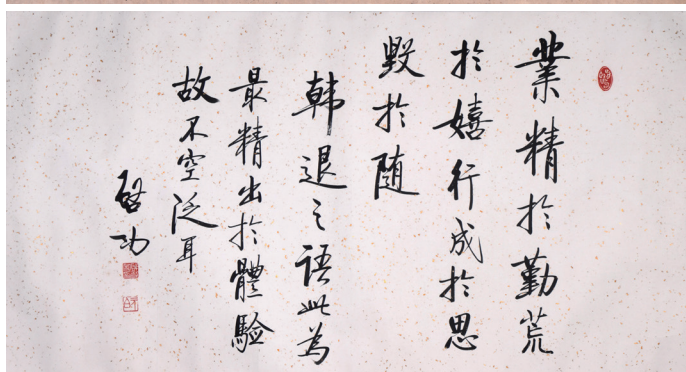 業精於勤荒
於嬉行成於思
毀於随
韩退之語此為
最精出於體驗
故不空泛耳
啓功